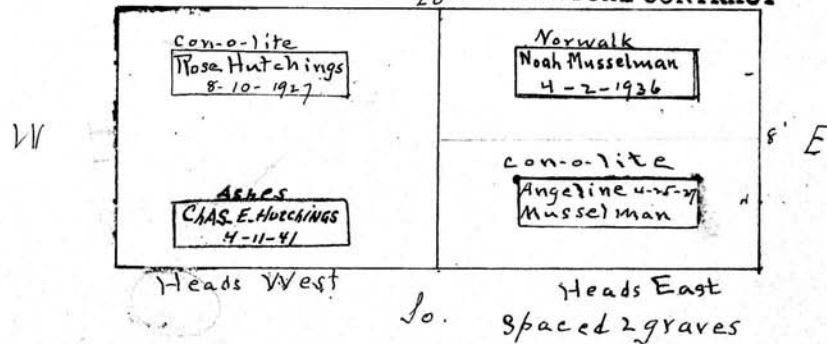 CONTRACT
con-o-lite
Rose Hutchings
8-10-1927
Norwalk
Noah Musselman
4-2-1936
W
8'
E
Ashes
ChAS. E. HutchiNGS
4-11-41
con-o-lite
Angeline 4-25-27
Musselman
Heads West
So.
Heads East
Spaced 2 graves